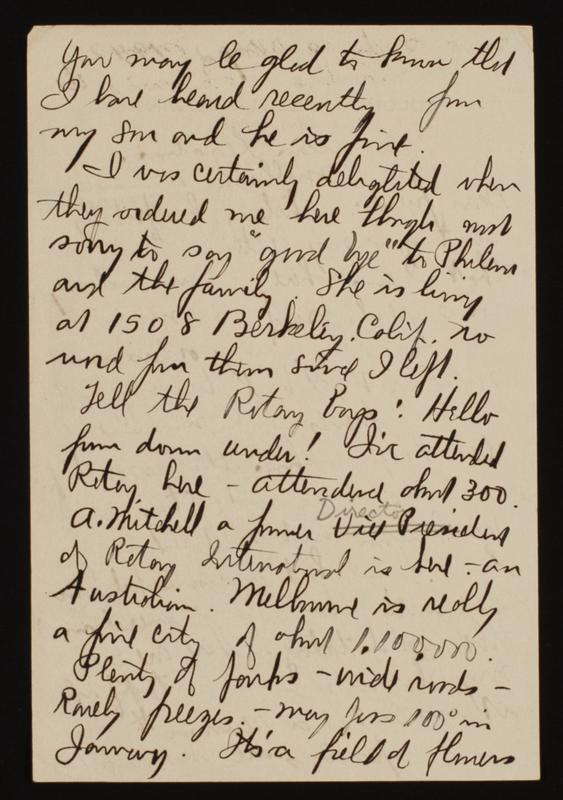 You may be glad to know that
I have heard recently from
my son and he is fine.
I was certainly delighted when
they ordered me here though not
sorry to say "good bye" to Philena
and the family. She is living
at 1508 Berkeley, Calif. no
word from them since I left.
Tell the Rotary Boys: Hello
from down under! I've attended
Rotary here - attendence about 300.
A. Mitchell a former Director Vice President
of Rotary International is here - an
Australian. Melbourne is really
a fine city of about 1,100,000.
Plenty of parks - wide roads -
Rarely freezes. - may pass 100° in
January. It's a field of flowers